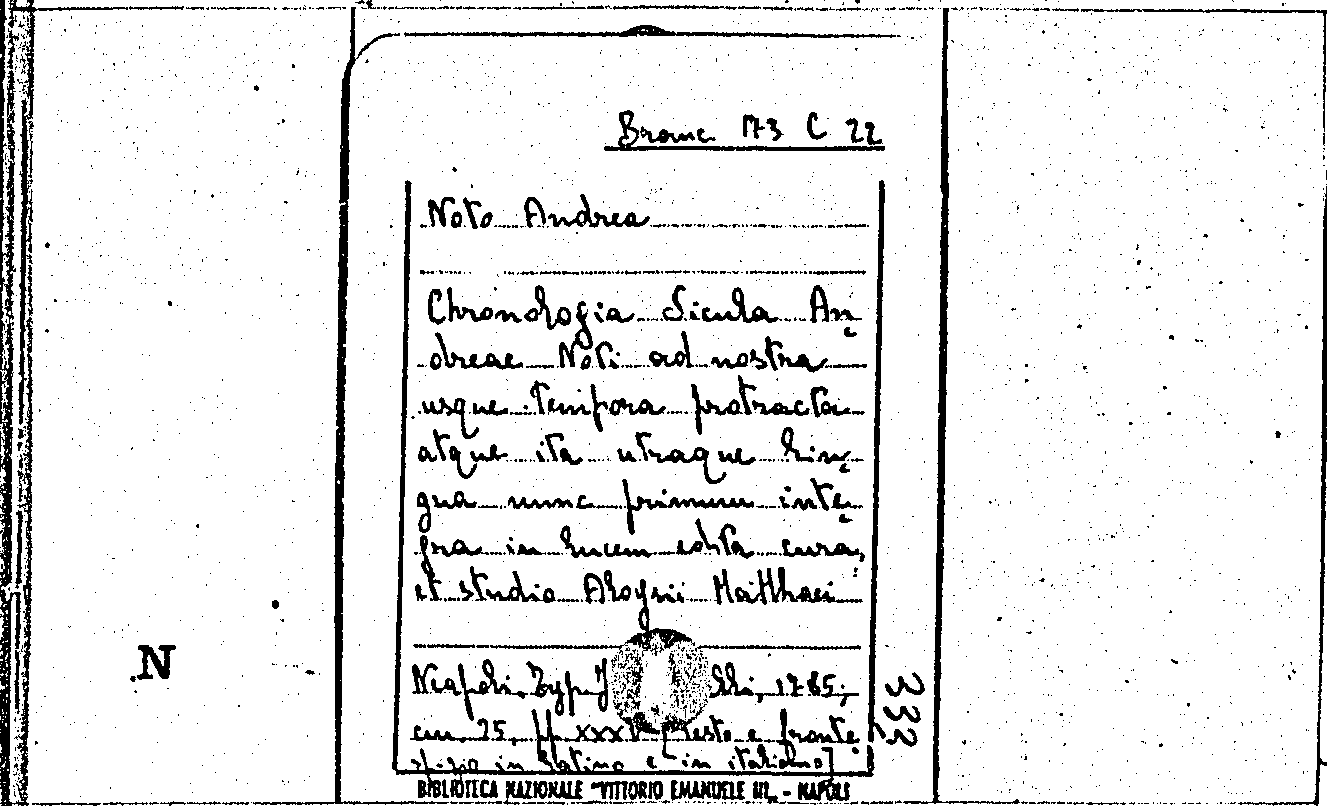 Branc 173 C 22
Noto Andrea
Chronologia Sicula An=
dreae Noti ad nostra
usque tempora protracta
atque ita utraque lin=
gua nunc primum inte=
gra in lucem edita cura,
et studio Aloysii Matthaei
Neapoli, Typ. J lli, 1785;
cm. 25, pp. [Testo e fronte=
spizio in latino e in italiano]
BIBLIOTECA NAZIONALE "VITTORIO EMANUELE III" - NAPOLI
N
333